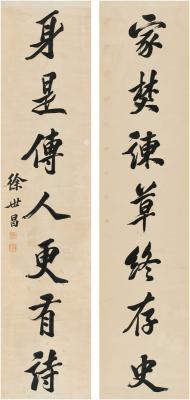 家焚諫草終存史
身是傳人更有詩
徐世昌